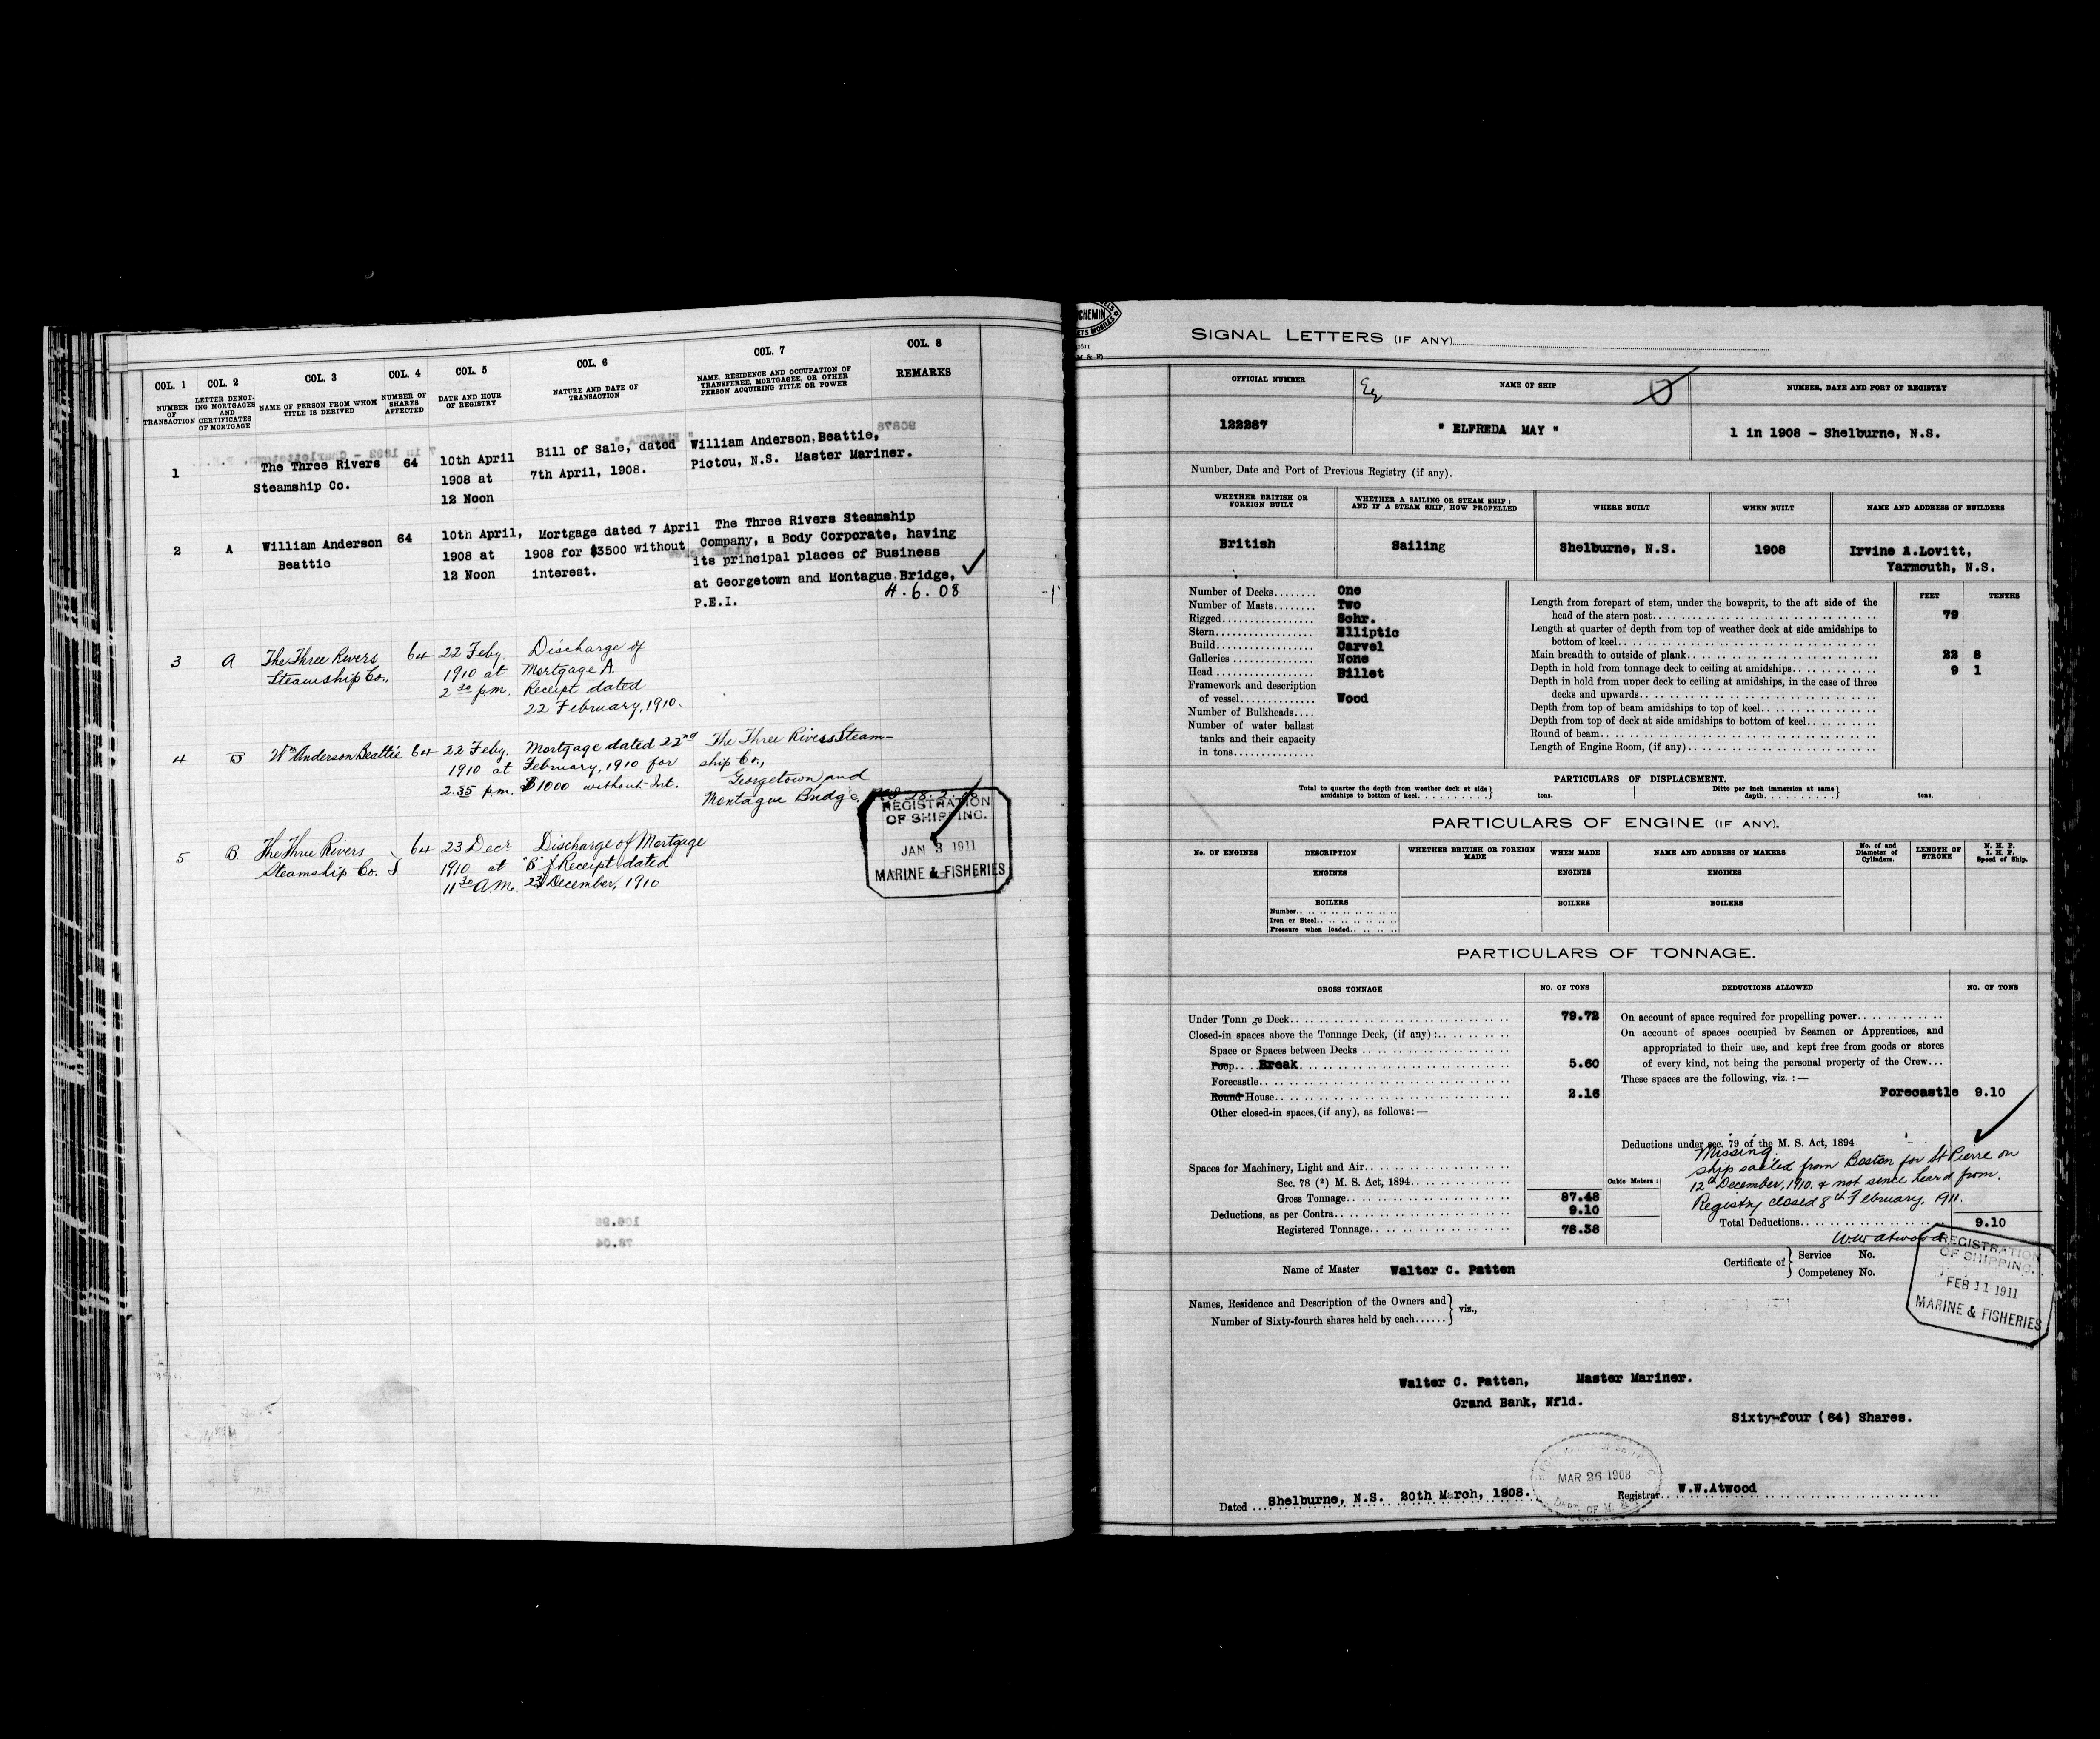 COL. 1
COL. 2
COL. 3
COL. 4
COL. 5
COL. 6
COL. 7
COL. 8
NUMBER OF TRANSACTION
LETTER DENOTING MORTGAGES AND CERTIFICATES OF MORTGAGE
NAME OF PERSON FROM WHOM TITLE IS DERIVED
NUMBER OF SHARES AFFECTED
DATE AND HOUR OF REGISTRY
NATURE AND DATE OF TRANSACTION
NAME, RESIDENCE AND OCCUPATION OF TRANSFEREE, MORTGAGEE, OR OTHER PERSON ACQUIRING TITLE OR POWER
REMARKS
1
The Three Rivers
Steamship Co.
64
10th April
1908 at
12 Noon
Bill of Sale, dated
7th April, 1908.
William Anderson Beattie,
Pictou, N.S. Master Mariner.
2
A
William Anderson
Beattie
64
10th April,
1908 at
12 Noon
Mortgage dated 7 April
1908 for $3500 without
interest.
The Three Rivers Steamship
Company, a Body Corporate, having
its principal places of Business
at Georgetown and Montague Bridge,
P.E.I.
4.6.08
3
A
The Three Rivers
Steamship Co.,
64
22 Feby.
1910 at
2 30 p.m.
Discharge of
Mortgage A.
Receipt dated
22 February, 1910.
4
B
Wm Anderson Beattie
64
22 Feby.
1910 at
2.35 p.m.
Mortgage dated 22nd
February, 1910 for
$1000 without Int.
The Three Rivers Steam-
ship Co.,
Georgetown and
Montague Bridge,
REGISTRATION
OF SHIPPING.
JAN 3 1911
MARINE & FISHERIES
5
B.
The Three Rivers
Steamship Co.
64
23 Decr
1910 at
11 30 A.M.
Discharge of Mortgage
"B" Receipt dated
23 December, 1910
SIGNAL LETTERS (IF ANY)
OFFICIAL NUMBER
NAME OF SHIP
NUMBER, DATE AND PORT OF REGISTRY
122287
" ELFREDA MAY "
1 in 1908 - Shelburne, N.S.
Number, Date and Port of Previous Registry (if any).
WHETHER BRITISH OR FOREIGN BUILT
WHETHER A SAILING OR STEAM SHIP; AND IF A STEAM SHIP, HOW PROPELLED
WHERE BUILT
WHEN BUILT
NAME AND ADDRESS OF BUILDERS
British
Sailing
Shelburne, N.S.
1908
Irvine A.Lovitt,
Yarmouth, N.S.
FEET
TENTHS
Number of Decks........ One
Number of Masts........ Two
Rigged................. Schr.
Stern.................. Elliptic
Build.................. Carvel
Galleries ............. None
Head .................. Billet
Framework and description
of vessel.............. Wood
Number of Bulkheads....
Number of water ballast
tanks and their capacity
in tons..............
Length from forepart of stem, under the bowsprit, to the aft side of the
head of the stern post.. 79
Length at quarter of depth from top of weather deck at side amidships to
bottom of keel..
Main breadth to outside of plank.. 22 8
Depth in hold from tonnage deck to ceiling at amidships.. 9 1
Depth in hold from upper deck to ceiling at amidships, in the case of three
decks and upwards..
Depth from top of beam amidships to top of keel..
Depth from top of deck at side amidships to bottom of keel..
Round of beam..
Length of Engine Room, (if any)..
PARTICULARS OF DISPLACEMENT.
Total to quarter the depth from weather deck at side
amidships to bottom of keel..........
tons.
Ditto per inch immersion at same
depth...........
tons.
PARTICULARS OF ENGINE (IF ANY).
No. OF ENGINES
DESCRIPTION
WHETHER BRITISH OR FOREIGN MADE
WHEN MADE
NAME AND ADDRESS OF MAKERS
No. of and Diameter of Cylinders.
LENGTH OF STROKE
N. H. P. I. H. P. Speed of Ship.
ENGINES
ENGINES
ENGINES
BOILERS
BOILERS
BOILERS
Number..
Iron or Steel..
Pressure when loaded..
PARTICULARS OF TONNAGE.
GROSS TONNAGE
NO. OF TONS
DEDUCTIONS ALLOWED
NO. OF TONS
Under Tonn ge Deck.. 79.72
Closed-in spaces above the Tonnage Deck, (if any):..
Space or Spaces between Decks ..
Poop.. Break.. 5.60
Forecastle..
Round House.. 2.16
Other closed-in spaces,(if any), as follows:—
Spaces for Machinery, Light and Air..
Sec. 78 (2) M. S. Act, 1894..
Gross Tonnage.. 87.48
Deductions, as per Contra.. 9.10
Registered Tonnage.. 78.38
On account of space required for propelling power..
On account of spaces occupied by Seamen or Apprentices, and
appropriated to their use, and kept free from goods or stores
of every kind, not being the personal property of the Crew...
These spaces are the following, viz. :—
Forecastle 9.10
Deductions under sec. 79 of the M. S. Act, 1894
Missing.
Ship sailed from Boston for St Pierre on
12th December, 1910, & not since heard from.
Registry closed 8th February, 1911.
Cubic Meters:
Total Deductions.. 9.10
W.W. Atwood
REGISTRATION
OF SHIPPING.
FEB 11 1911
MARINE & FISHERIES
Name of Master Walter C. Patten
Certificate of
Service No.
Competency No.
Names, Residence and Description of the Owners and
Number of Sixty-fourth shares held by each......
viz.,
Walter C. Patten, Master Mariner.
Grand Bank, Nfld.
Sixty-four (64) Shares.
MAR 26 1908
Dated .... Shelburne, N.S. 20th March, 1908.
Registrar.. W.W.Atwood